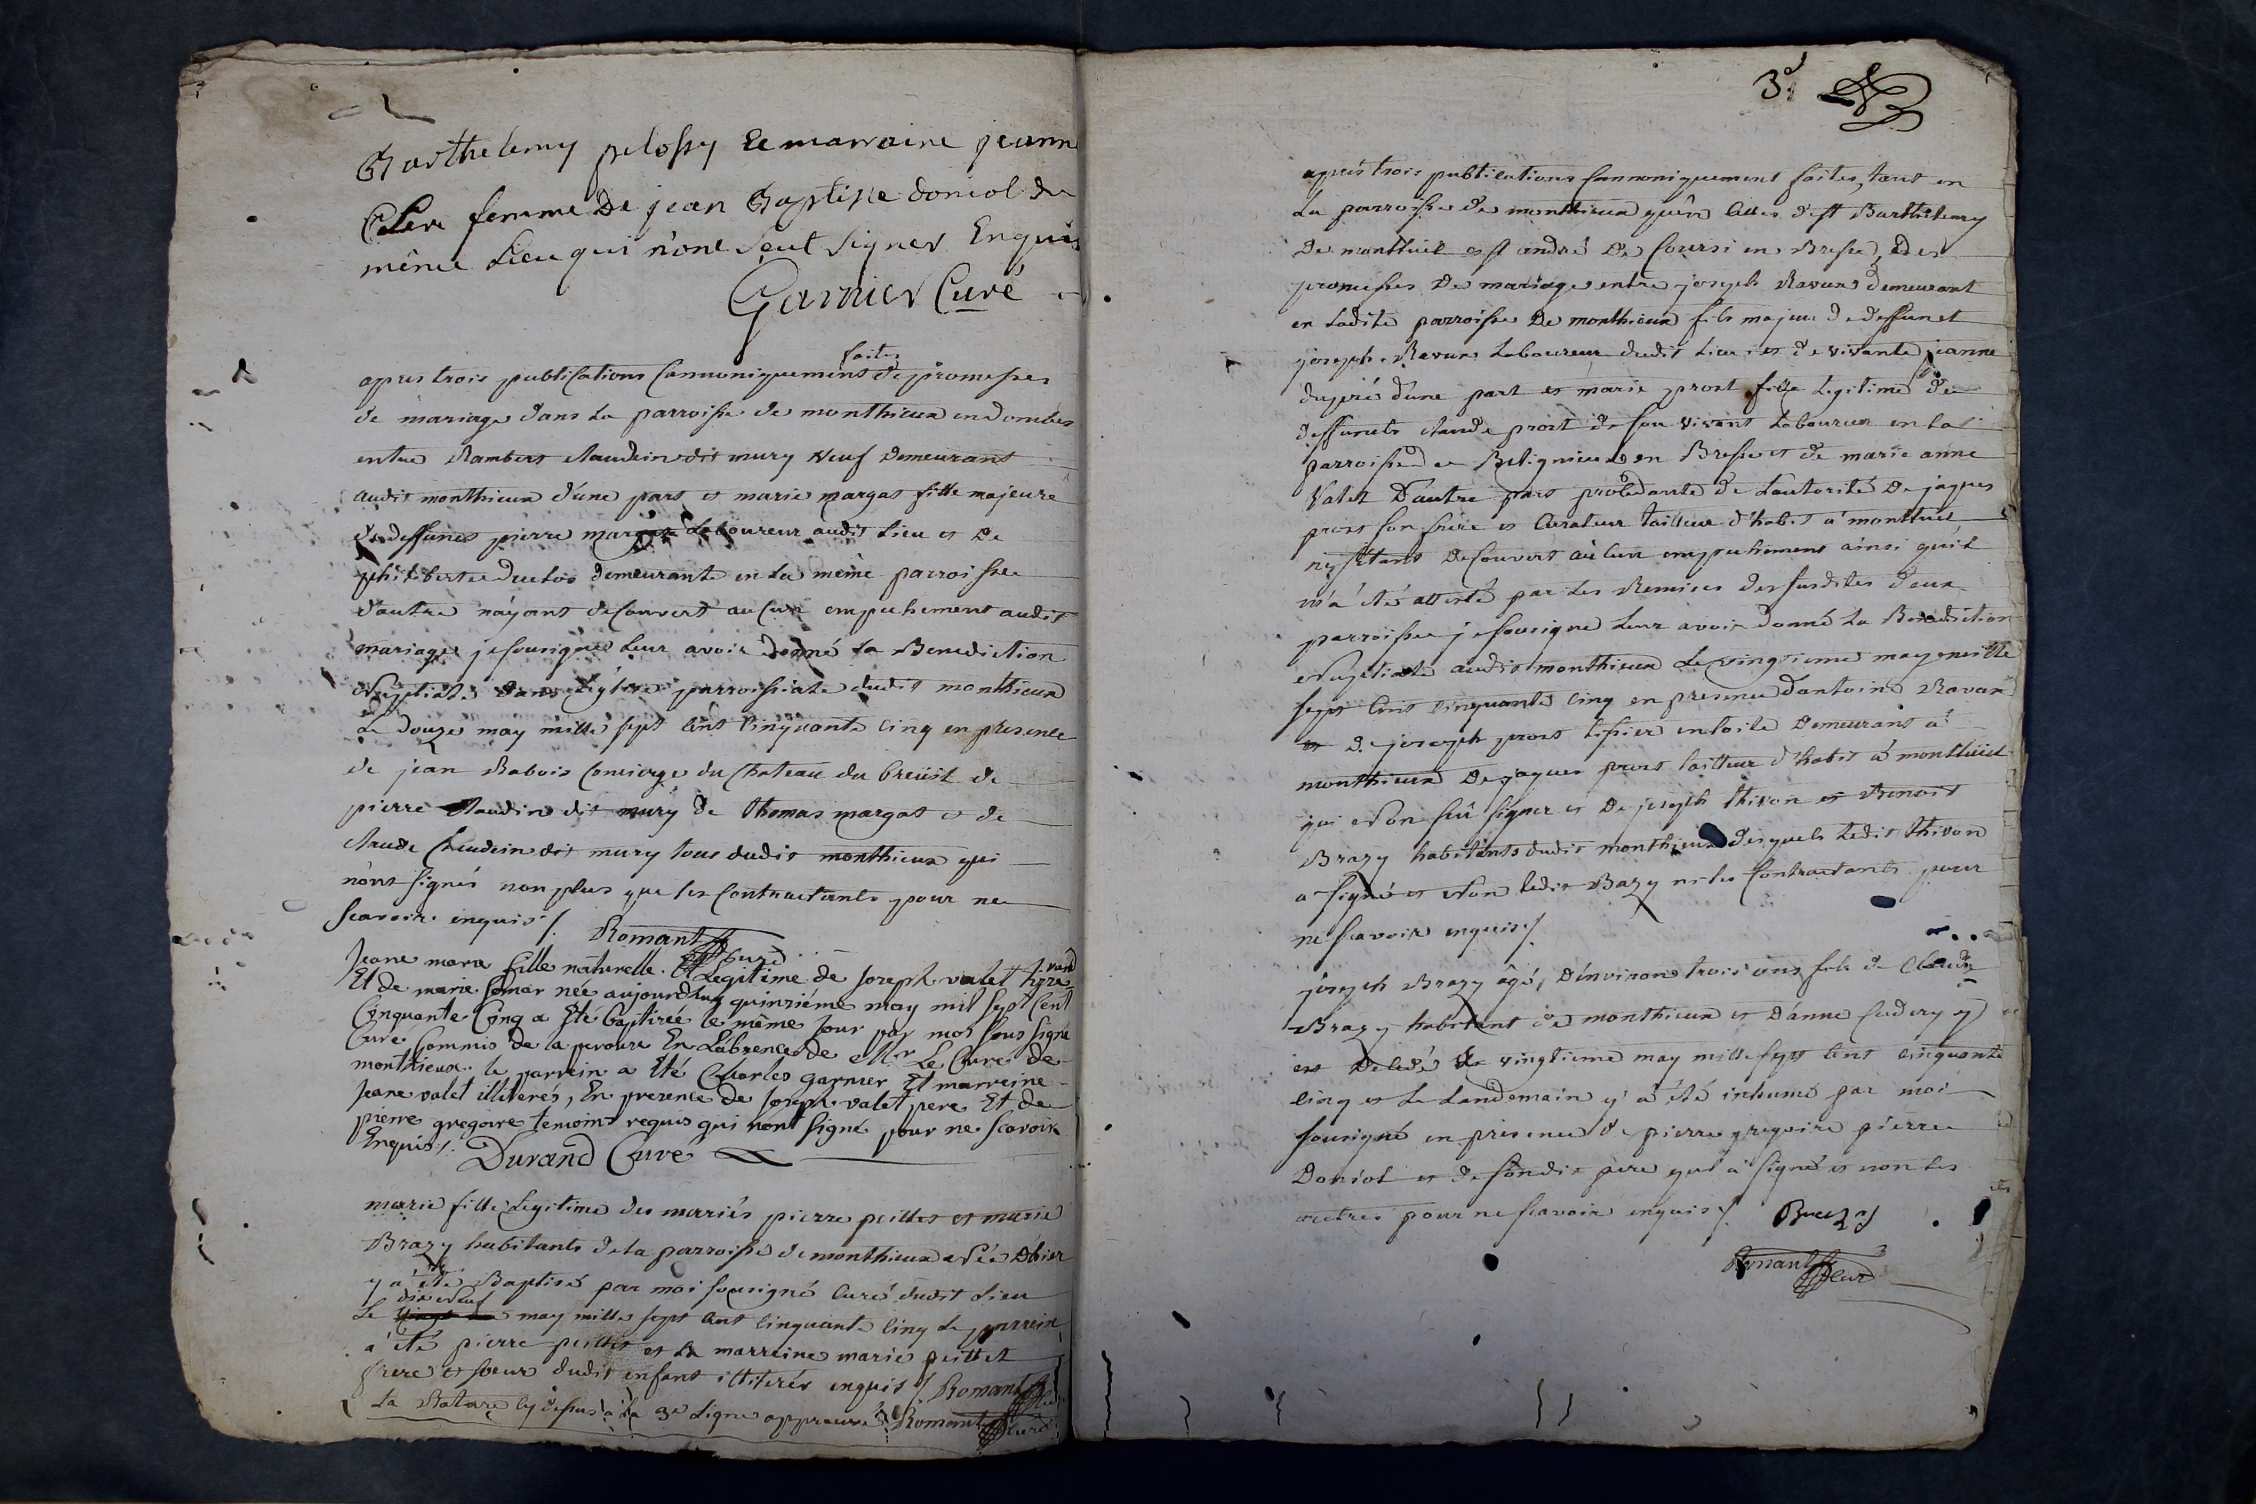 Barthelemy pelossy Et marraine jeanne
Clere femme De jean Baptiste doniol du
même Lieu qui n'ont sçut signer Enquis
Garnier Curé
faites
apres trois publications Cannoniquement de promesses
de mariage dans la parroisse de monthieux en dombes
entre Rambert claudin dit mury veuf demeurant
audit monthieux d'une part et marie margat fille majeure
de deffunct pierre margat laboureur audit lieu et de
philiberte demeurante en la même parroisse
d'autre n'ayant descouvert aucun empechement audit
mariage je sousigné leur avoir donné la Benediction
Nuptiale dans l'église parroissiale dudit monthieux
le douze may mille sept cent cinquante cinq en presence
de jean Rabois concierge du chateau du breüil de
pierre claudin dit mury de thomas margat et de
claude claudin dit mury tous dudit monthieux qui
n'ont signés non plus que les contractants pour ne
scavoir enquis /. Romant Curé
Jeane mara fille naturelle Et Legitime de Joseph valet
Et de marie née aujourdhuy quinziéme may mil sept Cent
Cinquante Cinq a Eté baptizée le même jour par moy sous signé
Curé Commis de la En L'absence de Mr Le Curé de
monthieux. le parrein a Eté Charles garnier Et marreine
Jeane valet illiterés, En presence de Joseph valet pere Et de
pierre gregoire temoins requis qui n'ont signé pour ne scavoir
Enquis /. Durand Curé
marie fille legitime des mariés pierre peillet et marie
Brazy habitants de la parroisse de monthieux née d'hier
y a été Baptisé par moi sousigné curé dudit lieu
dix neuf
le may mille sept cent cinquante cinq le parrein
a été pierre peillet et la marreine marie peillet
frere et soeur dudit enfant illiterés enquis /. Romant Curé
la Rature cy dessus a la 3e ligne approuvé Romant Curé
3e
après trois publications cannoniquement faites, tant en
la parroisse de monthieux qu'en celles de st Barthelemy
de montluel et st andré de en Bresse, des
promesses de mariage entre joseph Ravan demeurant
en ladite parroisse de monthieux fils majeur de deffunct
joseph Ravan laboureur dudit lieu et de vivante jeanne
d'une part et marie prost fille legitime de
deffuncts claude prost de son vivant laboureur en la
parroisse de Beligneux en Bresse et de marie anne
valet d'autre part procedante de l'autorité de jaques
prost son frère et curateur tailleur d'habit a montluel
n'y étant descouvert aucun empechement ainsi qu'il
m'a été attesté par les Remises desusdites d'eux
parroisses je sousigné leur avoir donné la Benediction
Nuptiale audit monthieux le vingtieme may mille
sept cent cinquante cinq en presence d'antoine Ravan
et de joseph prost tissier en toile demeurant a
monthieux de jaques prost tailleur d'habit à montluel
qui n'ont sçû signer et de joseph thivon et Benoit
Brazy habitants dudit monthieux desquels ledit thivon
a signé et non ledit Bazy ni les contractants pour
ne scavoir enquis /.
joseph Brazy âgé d'environ trois ans fils de Claude
Brazy habitant de monthieux et d'anne y
est decedé le vingtieme may mille sept cent cinquante
cinq et le landemain y a été inhumé par moi
sousigné en presence de pierre gregoire pierre
Doniol et de sondit pere qui a signé et non les
autres pour ne scavoir enquis /. Brazy
Romant Curé